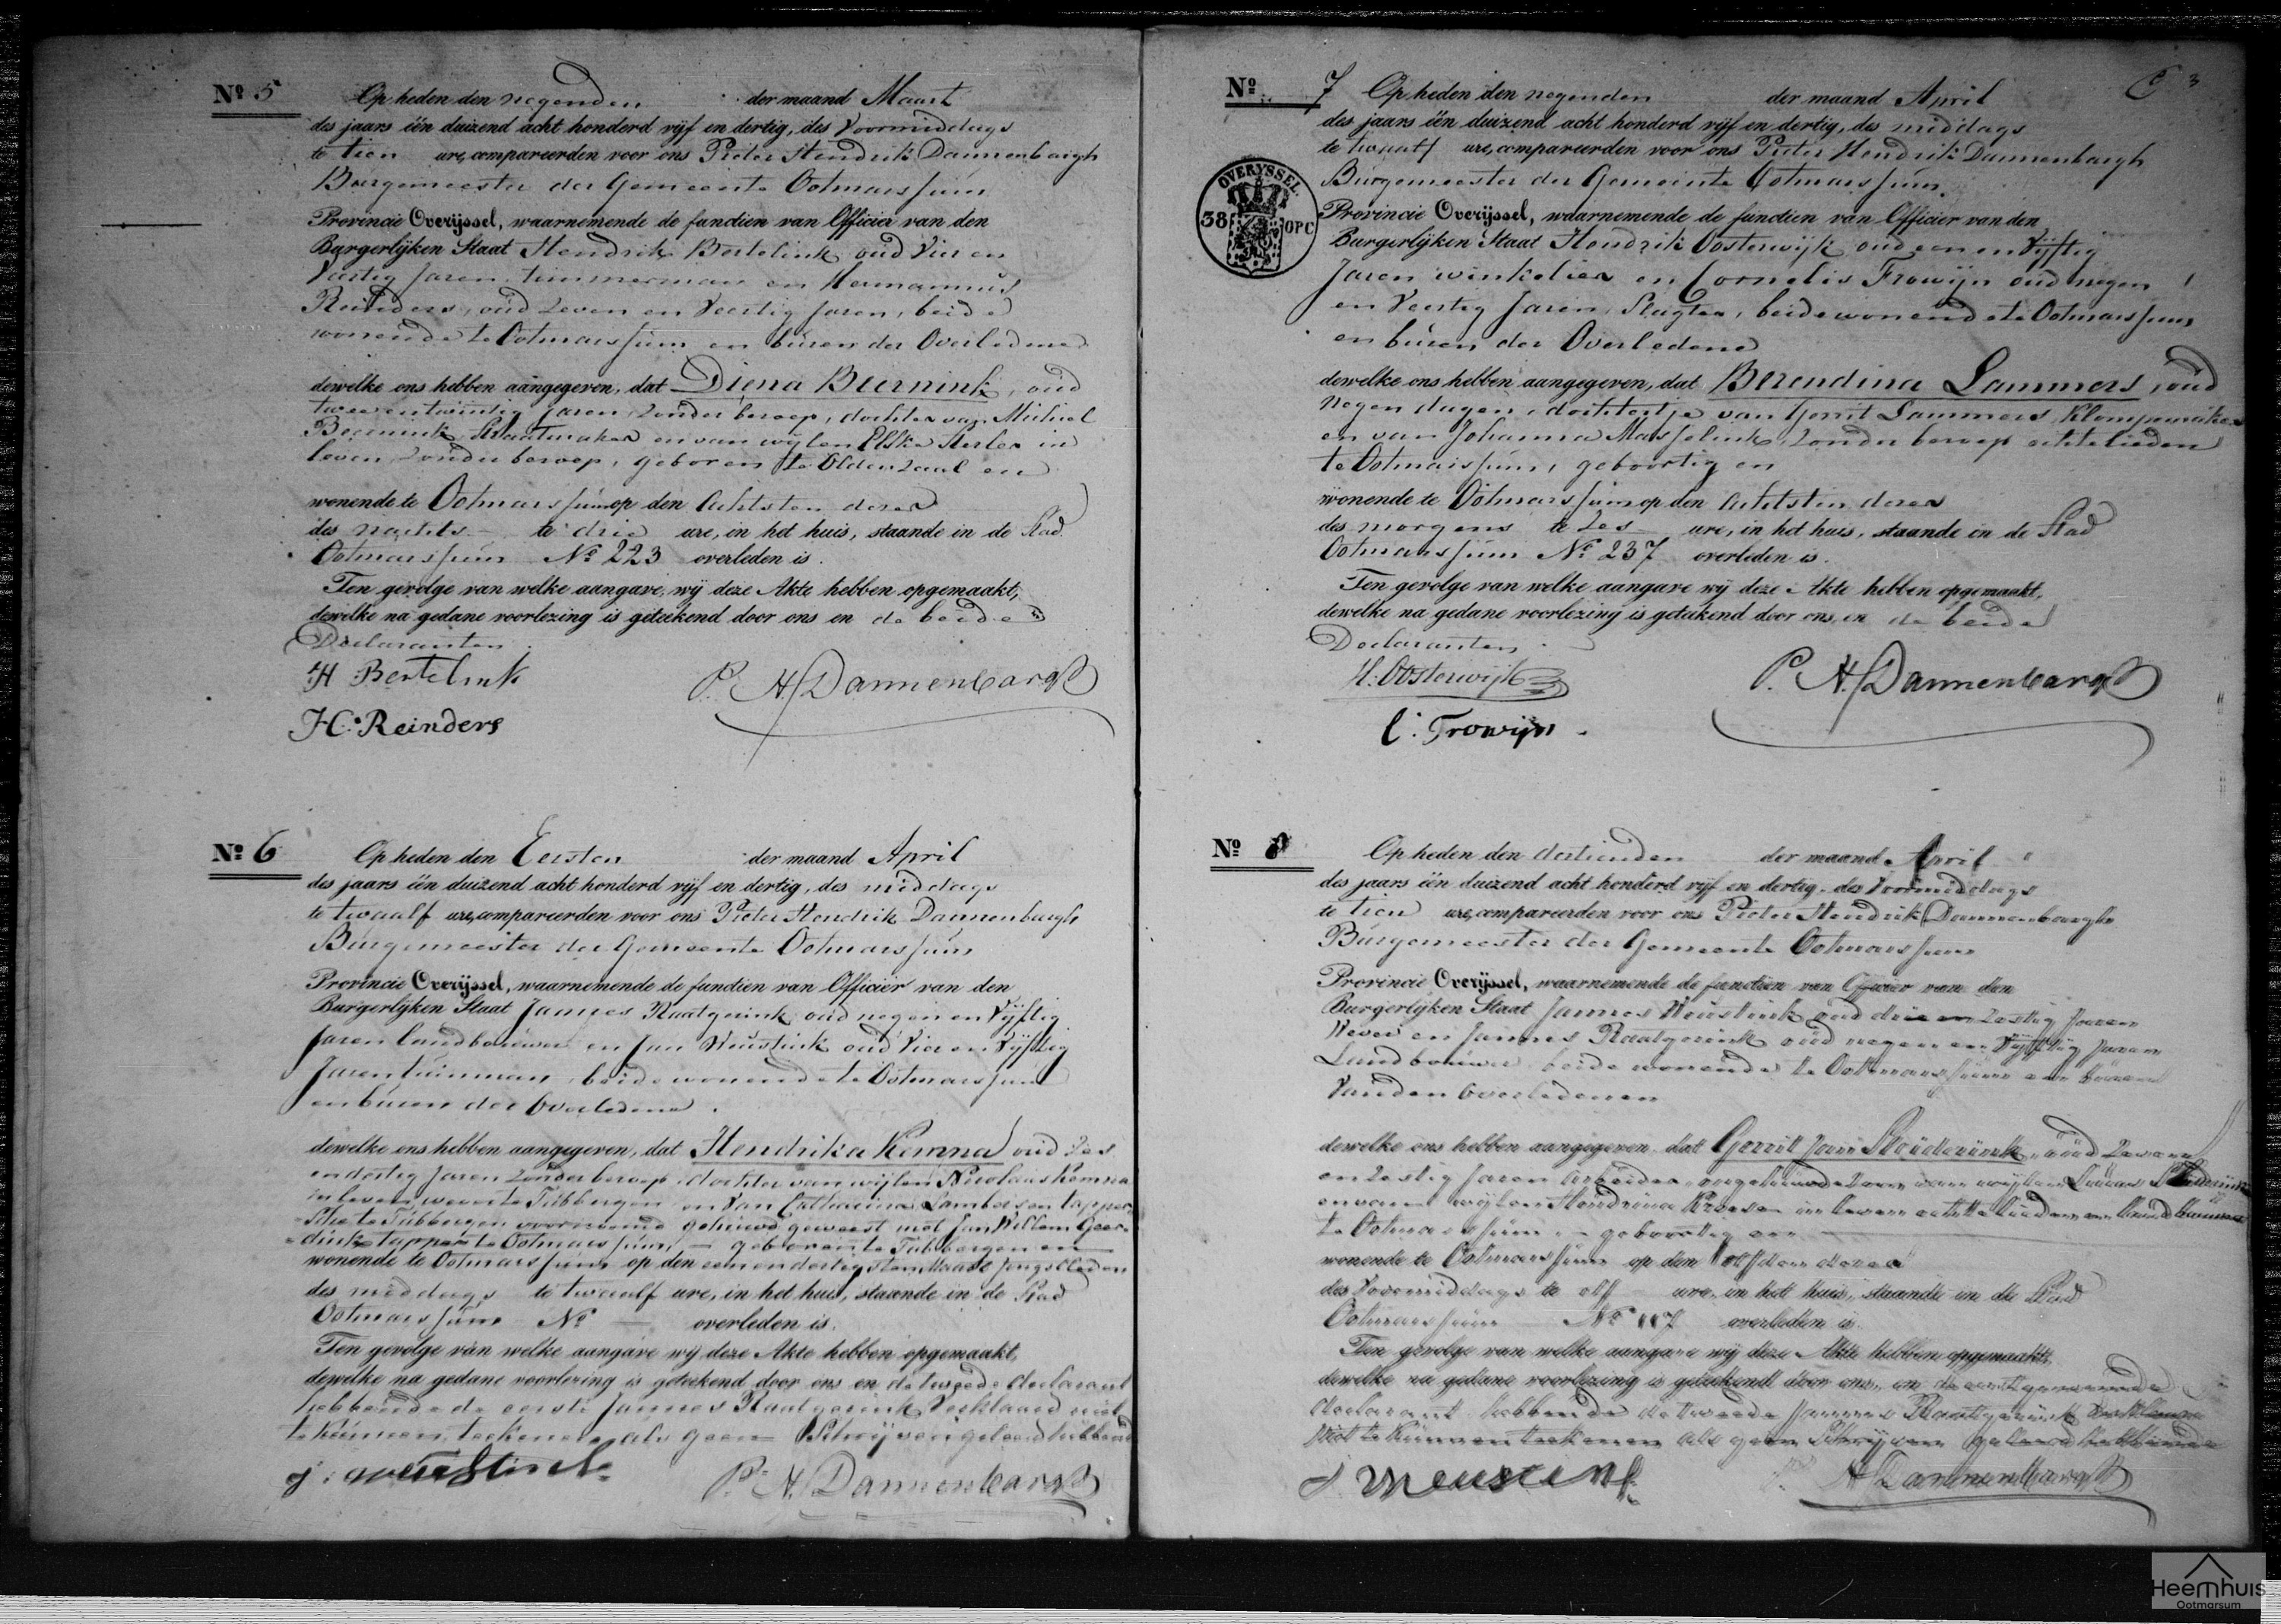 Nº 5
Op heden den negenden der maand Maart
des jaars één duizend acht honderd vijf en dertig, des Voormiddags
te tien ure, compareerden voor ons Pieter Hendrik Dannenbargh
Burgemeester der Gemeente Ootmarssum
Provincie Overijssel, waarnemende de functien van Officier van den
Burgerlijken Staat Hendrik Bertelink oud Vier en
Veertig Jaren timmerman en Hermannus
Reinders, oud Zeven en Veertig Jaren, beide
wonende te Ootmarssum en buren der Overledene
dewelke ons hebben aangegeven, dat Diena Beernink, oud
twee en twintig Jaren Zonder beroep, dochter van Michiel
Beernink Straatmaker en van wijlen Elske in
leven Zonder beroep, geboren te Oldenzaal en
wonende te Ootmarssum op den Achtsten dezer
des nachts te drie ure, in het huis, staande in de Stad
Ootmarssum Nº 223 overleden is.
Ten gevolge van welke aangave, wij deze Akte hebben opgemaakt,
dewelke na gedane voorlezing is geteekend door ons en de beide
Declaranten.
H Bertelink P. H. Dannenbargh
H. Reinders
Nº 6
Op heden den Eersten der maand April
des jaars één duizend acht honderd vijf en dertig, des middags
te twaalf ure, compareerden voor ons Pieter Hendrik Dannenbargh
Burgemeester der Gemeente Ootmarssum
Provincie Overijssel, waarnemende de functien van Officier van den
Burgerlijken Staat Jannes Raatgerink oud negen en Vijftig
Jaren landbouwer en Jan Weustink oud Vier en Vijftig
Jaren tuinman, beide wonende te Ootmarssum
en buren der Overledene.
dewelke ons hebben aangegeven, dat Hendrika Kemna oud Zes
en dertig Jaren Zonder beroep, dochter van wijlen Nicolaus Kemna
in leven te Tubbergen en Van Catharina Lambersen tapper-
sche te Tubbergen voornoemd gehuwd geweest met Jan Willem Geer-
dink tapper te Ootmarssum, geboren te Tubbergen en
wonende te Ootmarssum op den een en dertigsten Maart Jongstleden
des middags te twaalf ure, in het huis, staande in de Stad
Ootmarssum Nº — overleden is.
Ten gevolge van welke aangave wij deze Akte hebben opgemaakt,
dewelke na gedane voorlezing is geteekend door ons en de tweede declarant
hebbende de eerste Jannes Raatgerink Verklaard niet
te kunnen teekenen als geen Schrijven geleerd hebbende
J. Weustink P. H. Dannenbargh
3
Nº 7
Op heden den negenden der maand April
des jaars één duizend acht honderd vijf en dertig, des middags
te twaalf ure, compareerden voor ons Pieter Hendrik Dannenbargh
Burgemeester der Gemeente Ootmarssum
OVERYSSEL.
38 OPC
Provincie Overijssel, waarnemende de functien van Officier van den
Burgerlijken Staat Hendrik Oosterwijk oud een en Vijftig
Jaren winkelier en Cornelis Trowijn oud negen
en Veertig Jaren, Slagter, beide wonende te Ootmarssum
en buren der Overledene
dewelke ons hebben aangegeven, dat Berendina Lammers, oud
Negen dagen, dochtertje van Gerrit Lammers, Klompemaker
en van Johanna Masselink, Zonder beroep echtelieden
te Ootmarssum, geboortig en
wonende te Ootmarssum op den Achtsten dezer
des morgens te Zes ure, in het huis, staande in de Stad
Ootmarssum Nº 237 overleden is.
Ten gevolge van welke aangave wij deze Akte hebben opgemaakt,
dewelke na gedane voorlezing is geteekend door ons, en de beide
Declaranten.
H. Oosterwijk P. H. Dannenbargh
C. Trowijn.
Nº 8
Op heden den dertienden der maand April
des jaars één duizend acht honderd vijf en dertig, des Voormiddags
te tien ure, compareerden voor ons Pieter Hendrik Dannenbargh
Burgemeester der Gemeente Ootmarssum
Provincie Overijssel, waarnemende de functien van Officier van den
Burgerlijken Staat Jannes Weustink oud drie en Zestig Jaren
Wever en Jannes Raatgerink oud negen en Vijftig Jaren
Landbouwer beide wonende te Ootmarssum en buren
Van den Overledenen
dewelke ons hebben aangegeven dat Gerrit Jan oud Zeven
en Zestig Jaren Arbeider, ongehuwde Zoon van wijlen Lucas
en van wijlen Hendrina Kroese in leven echtelieden en
te Ootmarssum, geboortig en
wonende te Ootmarssum op den elfden dezer
des Voormiddags te elf ure, in het huis, staande in de Stad
Ootmarssum Nº 117 overleden is.
Ten gevolge van welke aangave wij deze Akte hebben opgemaakt,
dewelke na gedane voorlezing is geteekend door ons, en de eerstgenoemde
declarant hebbende de tweede Jannes Raatgerink Verklaard
Niet te kunnen teekenen als geen Schrijven geleerd hebbende
J Weustink P. H Dannenbargh
Heemhuis
Ootmarsum